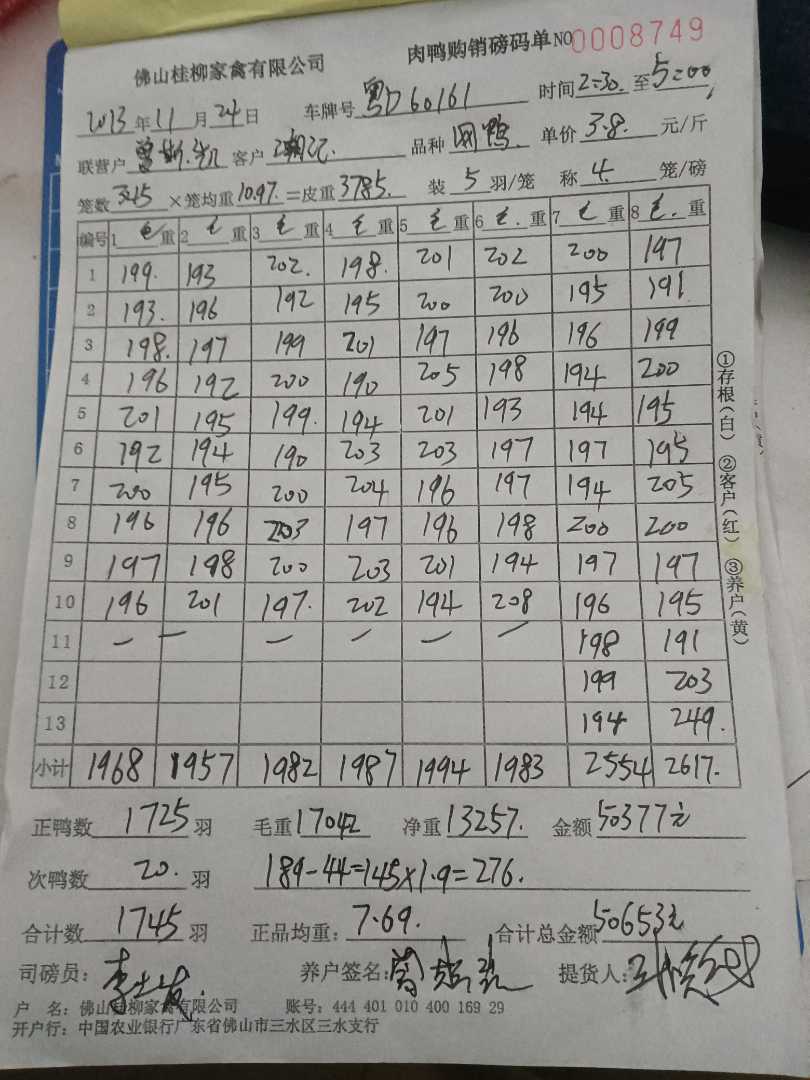 佛山桂柳家禽有限公司 肉鸭购销磅码单 NO 0008749
2013年11月24日 车牌号 粤D60161 时间 2:30 至 5:00
联营户 客户 品种 鸭 单价 3.8 元/斤
笼数 345 ×笼均重 10.97 =皮重 3785. 装 5 羽/笼 称 4 笼/磅
编号 1 毛重 2 毛重 3 毛重 4 毛重 5 毛重 6 毛重 7 毛重 8 毛重
1 199. 193 202. 198. 201 202 200 197
2 193. 196 192 195 200 200 195 191
3 198. 197 199 201 197 196 196 199
4 196 192 200 190 205 198 194 200
5 201 195 199. 194 201 193 194 195
6 192 194 190 203 203 197 197 195
7 200 195 200 204 196 197 194 205
8 196 196 203 197 196 198 200 200
9 197 198 200 203 201 194 197 197
10 196 201 197. 202 194 208 196 195
11 — — — — — — 198 191
12 199 203
13 194 249.
小计 1968 1957 1982 1987 1994 1983 2554 2617.
正鸭数 1725 羽 毛重 17042 净重 13257. 金额 50377元
次鸭数 20. 羽 189-44=145×1.9=276.
合计数 1745 羽 正品均重: 7.69. 合计总金额 50653元
司磅员: 养户签名: 提货人:
户 名: 佛山桂柳家禽有限公司 账号: 444 401 010 400 169 29
开户行: 中国农业银行广东省佛山市三水区三水支行
①存根(白) ②客户(红) ③养户(黄)